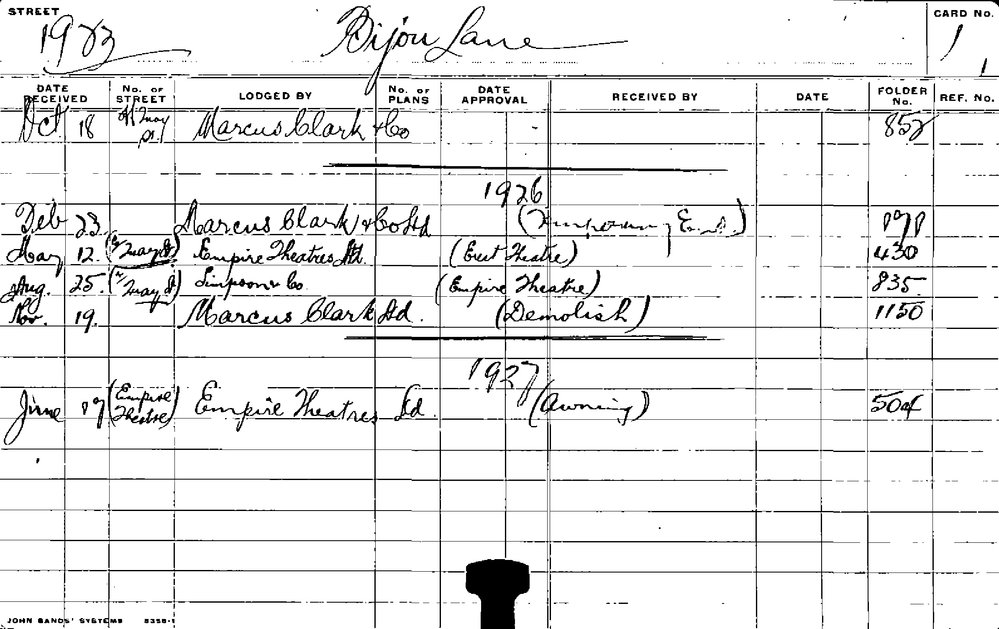 STREET
Bijou Lane
CARD NO.
1923
1
1
DATE RECEIVED No. OF STREET LODGED BY No. OF PLANS DATE APPROVAL RECEIVED BY DATE FOLDER No. REF. No.
Oct 18 Marcus Clark & Co - 852
1926
Feb 23. Marcus Clark & Co Ltd
May 12. (May St) Empire Theatres Ltd. (Erect Theatre) 430
Aug. 25. (May St) Simpson & Co. (Empire Theatre) 835
Nov. 19. Marcus Clark Ltd. (Demolish) 1150
1927
June 17 (Empire Theatre) Empire Theatres Ltd. (Awning) 504
JOHN SANDS' SYSTEMS 8358-1